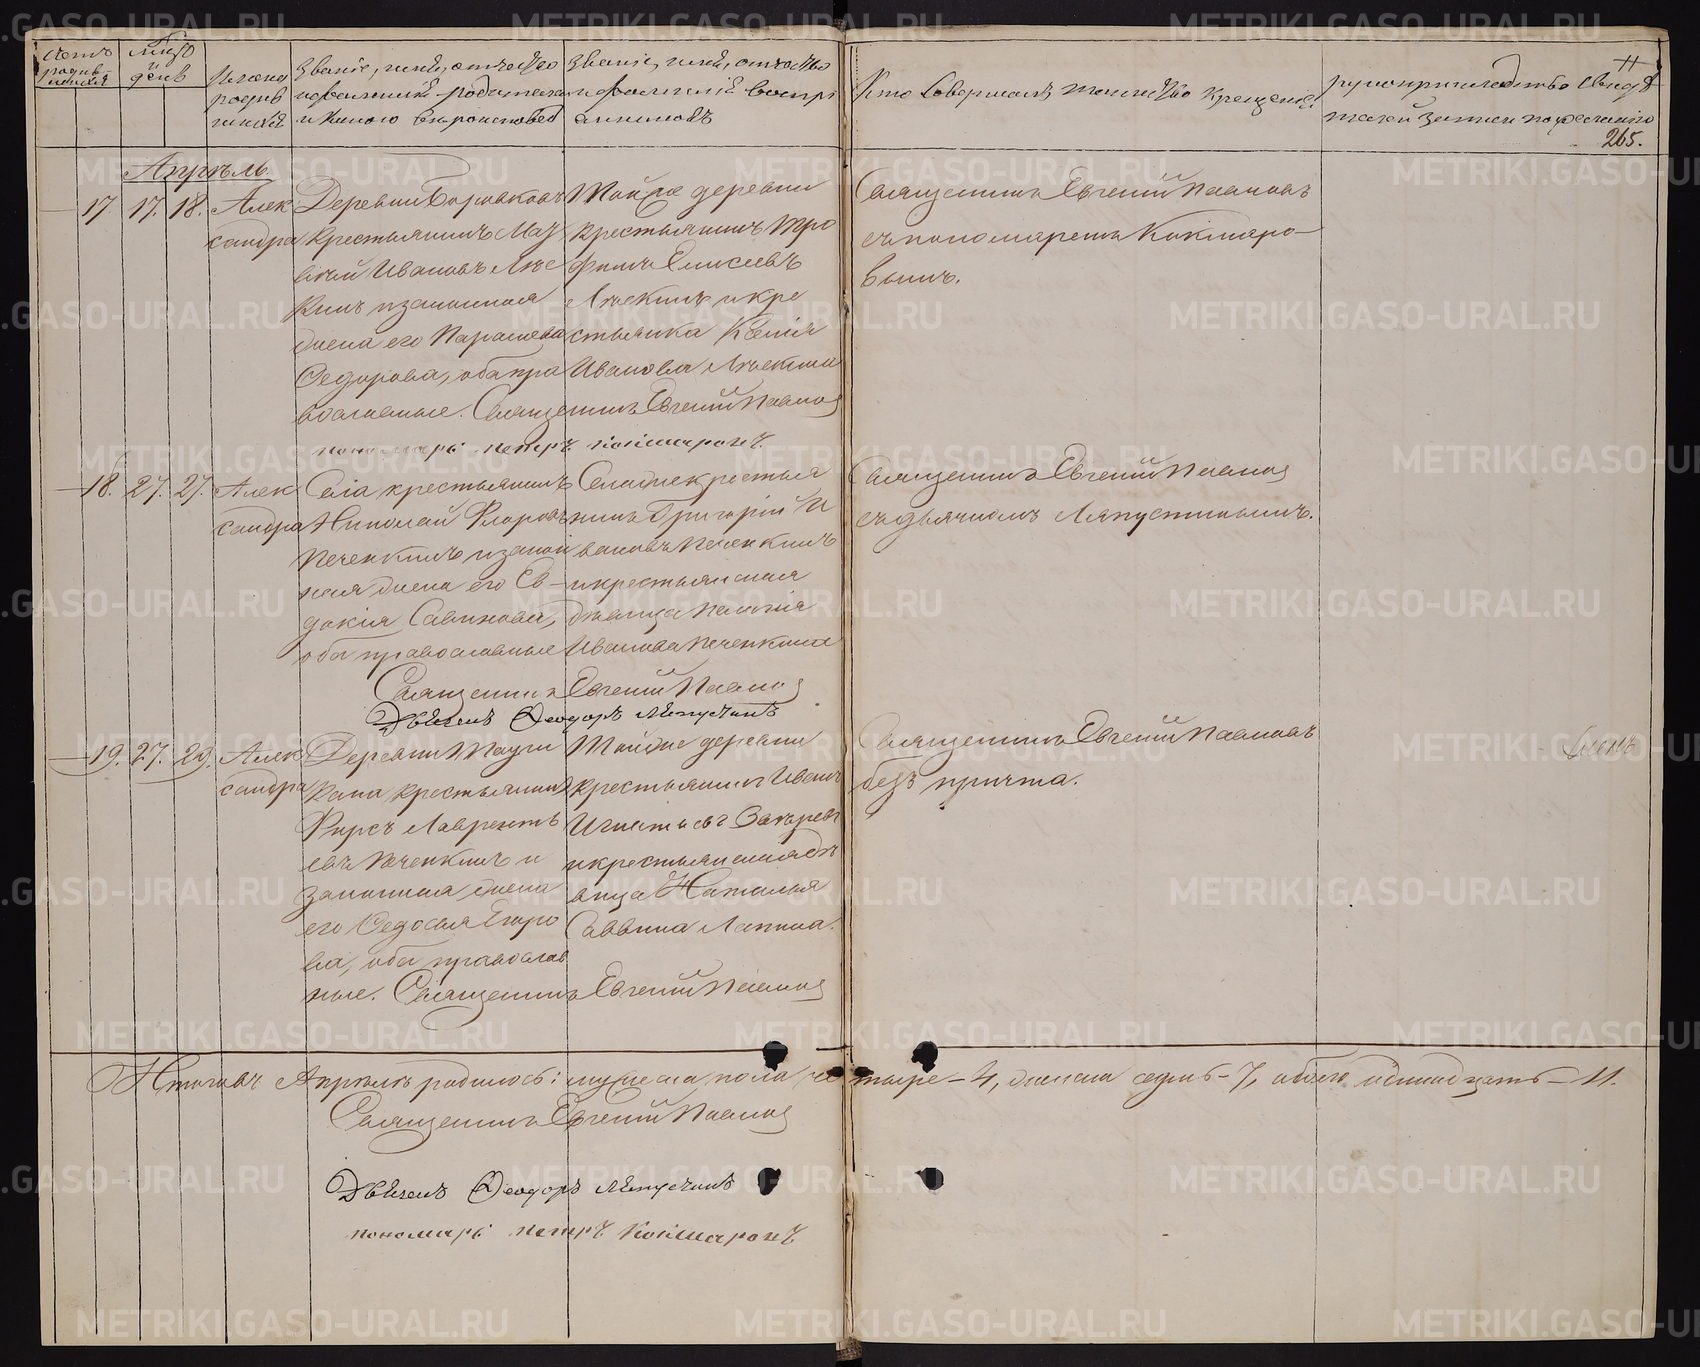 Счетъ родив шихся
мѣсяцъ и день
Имена родив шихся
Званіе, имя, отчество и фамилія родителей и какого вѣроисповѣд
Званіе, имя, отчество и фамилія воспри емниковъ
Кто совершалъ таинство крещенія
рукоприкладство свидѣ телей записи по желанію
11
265.
Апрѣль.
17 17. 18. Алек сандра
Деревни Боровковъ
крестьянинъ
Ивановъ
кинъ и законная
жена его Параскева
Ѳедорова, оба пра
вославные.
Тойже деревни
крестьянинъ Тро
фимъ Елисеевъ
и кре
стьянка Ксенія
Ивановна
Священникъ Евгеній Поповъ
съ пономаремъ Кокшаро
вымъ.
Священникъ Евгеній Поповъ
пономарь петръ кокшаровъ.
18. 27. 27. Алек сандра
Села крестьянинъ
Николай Флоровъ
Печенкинъ и закон
ная жена его Ев
докія Саввинова,
оба православные
Села тогоже крестья
нинъ Григорій И
вановъ Печенкинъ
и крестьянская
дѣвица Пелагія
Иванова Печенкина
Священникъ Евгеній Поповъ
съ дьячкомъ Ляпустинымъ.
Священникъ Евгеній Поповъ
Дьячекъ Ѳеодоръ Ляпустинъ
19. 27. 29. Алек сандра
Деревни
крестьянинъ
Фирсъ Лаврентъ
евъ Печенкинъ и
законная жена
его Ѳедосья Егоро
ва, оба православ
ные.
Тойже деревни
крестьянинъ Иванъ
Игнатьевъ Захаровъ
и крестьянская дѣ
вица Наталья
Саввина Лапина.
Священникъ Евгеній Поповъ
безъ причта.
Священникъ Евгеній Поповъ
Итого въ Апрѣлѣ родилось: мужеска пола четыре - 4, женска седмь - 7, обоего одинадцать - 11.
Священникъ Евгеній Поповъ
Дьячекъ Ѳеодоръ Ляпустинъ
пономарь петръ кокшаровъ
METRIKI.GASO-URAL.RU